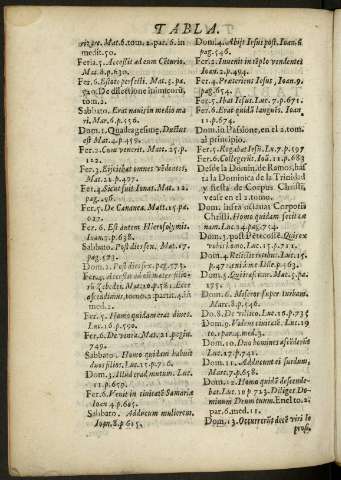 TABLA.
rit pro. Mat. 6. tom. 2. par. 6. in
medit. 50.
Feria. 5. Accessit ad eum Céturio.
Mat. 8. p. 630.
Fer. 6. Estote perfecti. Mat. 5. pa.
De dilectione inimicorū,
tom. 2.
Sabbato. Erat nauis in medio ma
ri. Mar. 6. p. 556.
Dom. 1. Quadragesimę. Ductus
est Mat. 4. p. 459.
Fer. 2. Cum venerit. Mat. 25. p.
122.
Fer. 3. Eijciebat omnes vēdentes.
Mat. 21. p. 497.
Fer. 4. Sicut fuit Ionas. Mat. 12.
pag.
Fer. 5. De Cananea. Matt. 15. pa.
627.
Fer. 6. Est autem Hierosolymis.
Ioan. 5. p. 638.
Sabbato. Post dies sex. Mat. 17.
pag. 573.
Dom. 2. Post dies sex. pag. 573.
Fer. 4. Accessit ad
Zebedęi. Mat. 20. p. 581. Ecce
ascendimus, tomo. 2. part. 4. in
med. 2.
Fer. 5. Homo quidam erat diues.
Luc. 16. p. 550.
Fer. 6. De vinea. Mat. 21. pagin.
749.
Sabbato. Homo quidam habuit
duos filios. Luc. 15. p.
Dom. 3. Illud erat mutum. Luc.
11. p. 659.
Fer. 6. Venit in ciuitatē Samarię
Ioan 4. p. 605.
Sabbato. Adducunt mulierem.
Ioan. 8. p 615.
Dom. 4. Abijt Iesus post. Ioan. 6
pag. 546.
Fer. 2. Inuenit in tēplo vendentes
Ioan. 2. p. 494.
Fer. 4. Praeteriens Iesus, Ioan. 9
pag. 654.
Fer. 5. Ibat Iesus. Luc. 7. p. 671.
Fer. 6. Erat quidā languēs. Ioan
11. p. 674.
Dom. in Passione, en el 2. tom.
al principio.
Fer. 5. Rogabat Iesū. Lu. 7. p. 597
Fer. 6. Collegerūt. Ioā. 11. p. 683
Desde la Domin. de Ramos, has
ta la Dominica de la Trinidad
y fiesta de Corpus Christi,
vease en el 2. tomo.
Dom. infra octauas Corporis
Christi. Homo quidam fecit cœ
nam. Luc. 14. pag. 754.
Dom. 3. post Pētecostē. Quis ex
vobis homo. Luc. 15. p. 721.
Dom. 4. Luc. 15.
p. 563.
Dom. 5. Mat. 5. pa.
175.
Dom. 6. Misereor super turbam.
Marc. 8. p. 548.
Do. 8. De villico. Luc. 16. p. 735
Dom. 9. Videns ciuitatē. Luc. 19
to. par. 4. med. 3.
Dom. 10. Duo homines ascēderūt
Luc. 17. p. 741.
Dom. 11. Adducunt ei surdum,
Mar. 7. p. 658.
Dom. 12. Homo quidā descende-
bat. Luc. 10 p 723. Diliges Do-
minum Deum tuum. En el to. 2.
par. 6. med. 11.
Dom. 13. Occurrerūt decē viri le
prosi,